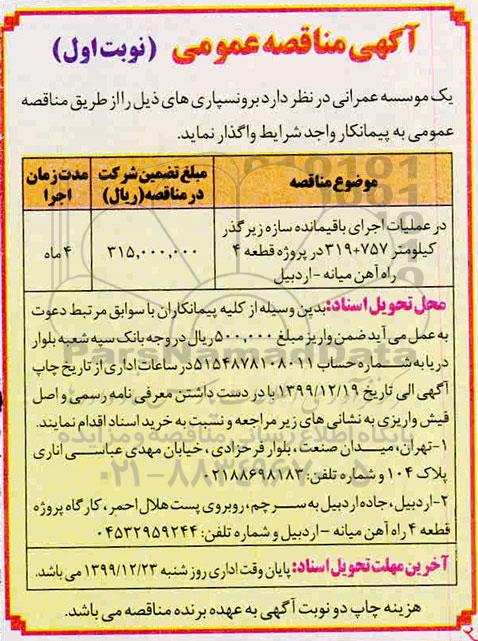 آگهی مناقصه عمومی (نوبت اول)
یک موسسه عمرانی در نظر دارد برونسپاری های ذیل را از طریق مناقصه
عمومی به پیمانکار واجد شرایط واگذار نماید.
موضوع مناقصه
مبلغ تضمین شرکت در مناقصه (ریال)
مدت زمان اجرا
در عملیات اجرای باقیمانده سازه زیر گذر
کیلومتر ۷۵۷+۳۱۹ در پروژه قطعه ۴
راه آهن میانه - اردبیل
۳۱۵,۰۰۰,۰۰۰
۴ ماه
محل تحویل اسناد: بدین وسیله از کلیه پیمانکاران با سوابق مرتبط دعوت
به عمل می آید ضمن واریز مبلغ ۵۰۰,۰۰۰ ریال در وجه بانک سپه شعبه بلوار
دریا به شماره حساب ۵۱۵۴۸۷۸۱۰۸۰۱۱ در ساعات اداری از تاریخ چاپ
آگهی الی تاریخ ۱۳۹۹/۱۲/۱۹ با در دست داشتن معرفی نامه رسمی و اصل
فیش واریزی به نشانی های زیر مراجعه و نسبت به خرید اسناد اقدام نمایند.
۱-تهران، میدان صنعت، بلوار فرحزادی، خیابان مهدی عباسی اناری
پلاک ۱۰۴ و شماره تلفن: ۰۲۱۸۸۶۹۸۱۸۳
۲-اردبیل، جاده اردبیل به سرچم، روبروی پست هلال احمر، کارگاه پروژه
قطعه ۴ راه آهن میانه - اردبیل و شماره تلفن: ۰۴۵۳۲۹۵۹۲۴۴
آخرین مهلت تحویل اسناد: پایان وقت اداری روز شنبه ۱۳۹۹/۱۲/۲۳ می باشد.
هزینه چاپ دو نوبت آگهی به عهده برنده مناقصه می باشد.
ParsNamadData
پایگاه اطلاع رسانی مناقصه و مزایده
۰۲۱-۸۸۳۴۹۶۷۰-۵